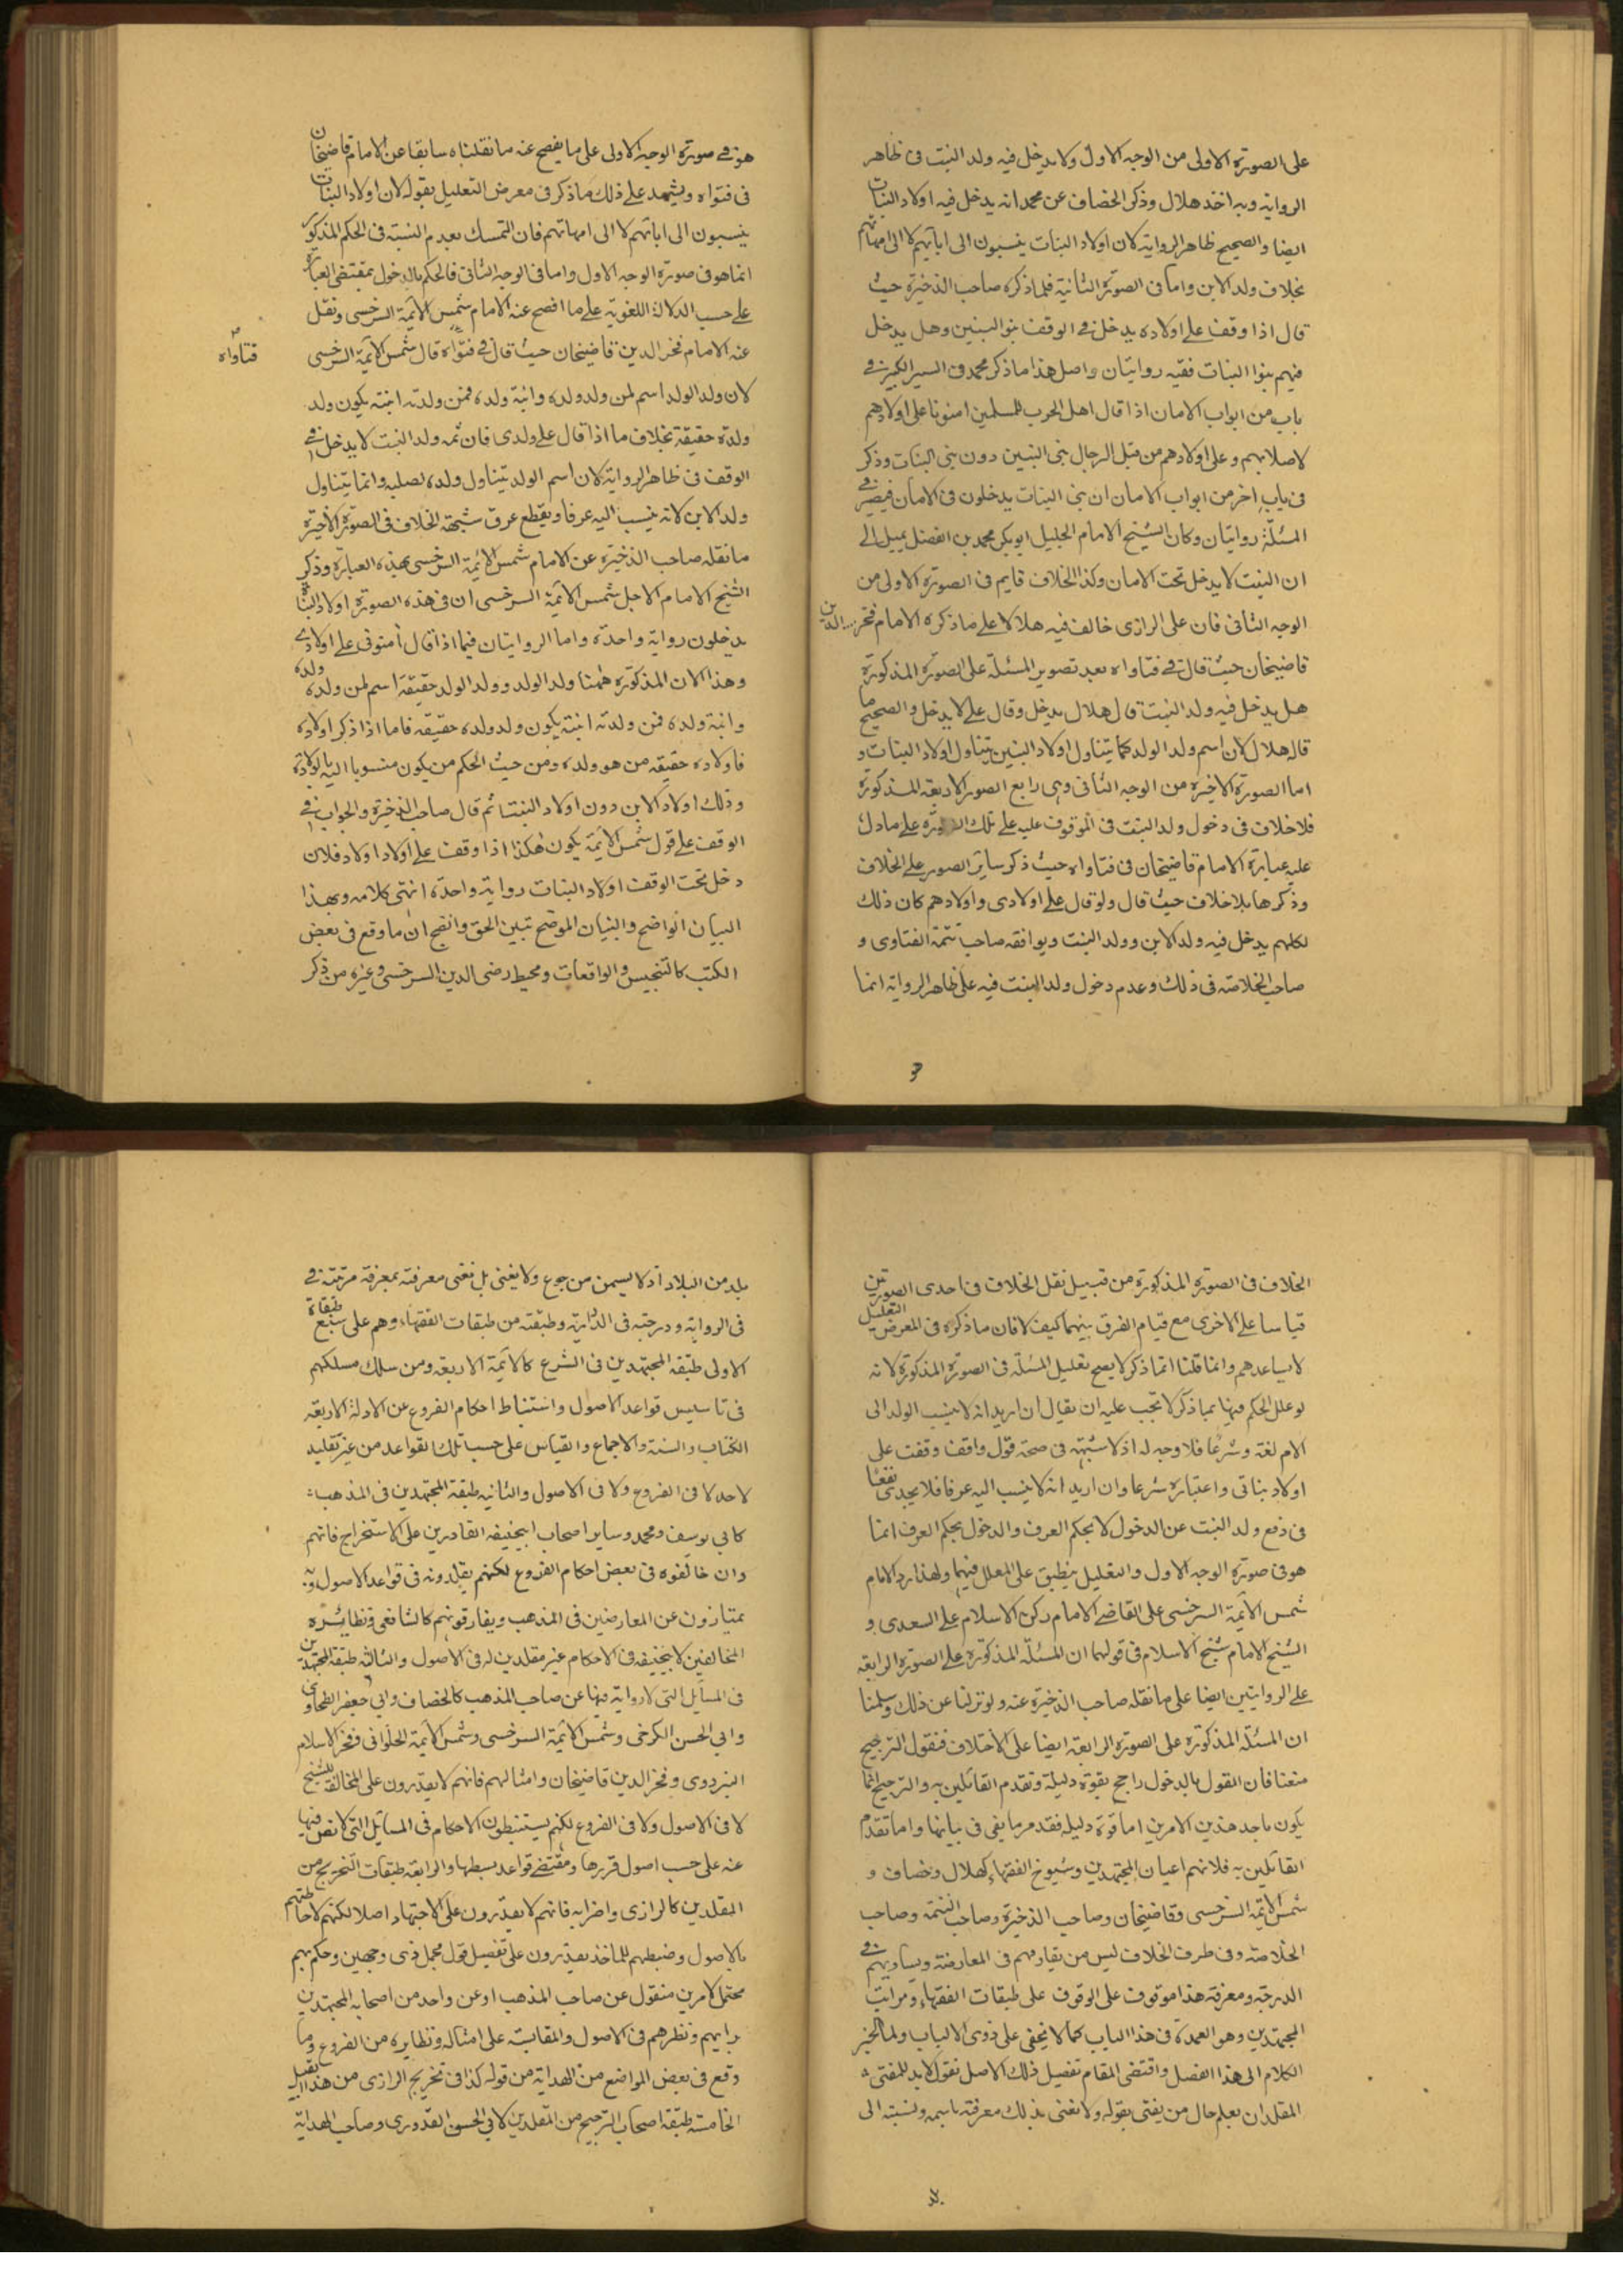 على الصورة الاولى من الوجه الاول ولا يدخل فيه ولد البنت فى ظاهر
الرواية وبه اخذ هلال وذكر الخصاف عن محمد انه يدخل فيه اولاد البنات
ايضا والصحيح ظاهر الرواية لان اولاد البنات ينسبون الى ابائهم لا الى امهاتهم
بخلاف ولد الابن واما فى الصورة الثانية فلما ذكره صاحب الذخيرة حيث
قال اذا وقف على اولاده يدخل فى الوقف بنو البنين وهل يدخل
فيهم بنوا البنات ففيه روايتان واصل هذا ما ذكر محمد فى السير الكبير فى
باب من ابواب الامان اذا قال اهل الحرب للمسلمين امنونا على اولادهم
لاصلابهم وعلى اولادهم من قبل الرجال بنى البنين دون بنى البنات وذكر
فى باب اخر من ابواب الامان ان بنى البنات يدخلون فى الامان فيصير فى
المسئلة روايتان وكان الشيخ الامام الجليل ابو بكر محمد بن الفضل يميل الى
ان البنت لا يدخل تحت الامان وكذا الخلاف قايم فى الصورة الاولى من
الوجه الثانى فان على الرازى خالف فيه هلالا على ما ذكره الامام فخر الدين
قاضيخان حيث قال فى فتاواه بعد تصوير المسئلة على الصورة المذكورة
هل يدخل فيه ولد البنت قال هلال يدخل وقال على لا يدخل والصحيح ما
قاله هلال لان اسم ولد الولد كما يتناول اولاد البنين يتناول اولاد البنات و
اما الصورة الاخيرة من الوجه الثانى وهى رابع الصور الاربعة المذكورة
فلا خلاف فى دخول ولد البنت فى الموقوف عليه على تلك الصورة على ما دل
عليه عبارة الامام قاضيخان فى فتاواه حيث ذكر ساير الصور على الخلاف
وذكرها بلا خلاف حيث قال ولو قال على اولادى واولادهم كان ذلك
لكلهم يدخل فيه ولد الابن وولد البنت ويوافقه صاحب تتمة الفتاوى و
صاحب الخلاصة فى ذلك وعدم دخول ولد البنت فيه على ظاهر الرواية انما
هو
هو فى صورة الوجه الاولى على ما يفصح عنه ما نقلناه سابقا عن الامام قاضيخان
فى فتواه ويشهد على ذلك ما ذكر فى معرض التعليل بقوله لان اولاد البنات
ينسبون الى ابائهم لا الى امهاتهم فان التمسك بعدم النسبة فى الحكم المذكور
انما هو فى صورة الوجه الاول واما فى الوجه الثانى فالحكم بالدخول بمقتضى العبارة
على حسب الدلالة اللغوية على ما افصح عنه الامام شمس الائمة السرخسى ونقل
عنه الامام فخر الدين قاضيخان حيث قال فى فتواه قال شمس الائمة السرخسى
فتاواه
لان ولد الولد اسم لمن ولد ولده وابنة ولده فمن ولدته ابنته يكون ولد
ولده حقيقة بخلاف ما اذا قال على ولدى فان ثمه ولد البنت لا يدخل فى
الوقف فى ظاهر الرواية لان اسم الولد يتناول ولده لصلبه وانما يتناول
ولد الابن لانه ينسب اليه عرفا ويقطع عرق شبهة الخلاف فى الصورة الاخيرة
ما نقله صاحب الذخيرة عن الامام شمس الائمة السرخسى بهذه العبارة وذكر
الشيخ الامام الاجل شمس الائمة السرخسى ان فى هذه الصورة اولاد البنات
يدخلون رواية واحدة واما الروايتان فيما اذا قال امنونى على اولادى
وهذا الان المذكورة ههنا ولد الولد وولد الولد حقيقة اسم لمن ولده ولده
وابنة ولده فمن ولدته ابنته يكون ولد ولده حقيقه فاما اذا ذكر اولاده
فاولاده حقيقه من هو ولده ومن حيث الحكم من يكون منسوبا اليه بالولادة
وذلك اولاد الابن دون اولاد البنت ثم قال صاحب الذخيرة والجواب فى
الوقف على قول شمس الائمة يكون هكذا اذا وقف على اولاد اولاد فلان
دخل تحت الوقف اولاد البنات رواية واحدة انتهى كلامه وبهذا
البيان الواضح والتبيان الموضح تبين الحق واتضح ان ما وقع فى بعض
الكتب كالتجنيس والواقعات ومحيط رضى الدين السرخسى وغيره من ذكر
الخلاف فى الصورة المذكورة من قبيل نقل الخلاف فى احدى الصورتين
قياسا على الاخرى مع قيام الفرق بينهما كيف لا فان ما ذكره فى المعرض التعليل
لا يساعدهم وانما قلنا انما ذكر لا يصح تعليل المسئلة فى الصورة المذكورة لانه
لو علل الحكم فيها بما ذكر لا تجب عليه ان يقال ان اريد انه لا ينسب الولد الى
الام لغة وشرعا فلا وجه له اذ لا شبهة فى صحة قول واقف وقفت على
اولاد بناتى واعتباره شرعا وان اريد انه لا ينسب اليه عرفا فلا يجدى نفعا
فى دفع ولد البنت عن الدخول لا بحكم العرف والدخول بحكم العرف انما
هو فى صورة الوجه الاول والتعليل ينطبق على المعلل فيها ولهذا رد الامام
شمس الائمة السرخسى على القاضى الامام ركن الاسلام على السعدى و
الشيخ الامام شيخ الاسلام فى قولهما ان المسئلة المذكورة على الصورة الرابعة
على الروايتين ايضا على ما نقله صاحب الذخيرة عنه ولو نزلنا عن ذلك وسلمنا
ان المسئلة المذكورة على الصورة الرابعة ايضا على الاختلاف فنقول الترجيح
معنا فان القول بالدخول راجح بقوة دليله وتقدم القائلين به والترجيح انما
يكون باحد هذين الامرين اما قوة دليله فقد مر ما يفى فى بيانها واما تقدم
القائلين به فلانهم اعيان المجتهدين وشيوخ الفقهاء كهلال وخصاف و
شمس الائمة السرخسى وقاضيخان وصاحب الذخيرة وصاحب التتمة وصاحب
الخلاصة وفى طرف الخلاف ليس من يقاومهم فى المعارضة ويساويهم فى
الدرجة ومعرفة هذا موقوف على الوقوف على طبقات الفقهاء ومراتب
المجتهدين وهو العمدة فى هذا الباب كما لا يخفى على ذوى الالباب ولما انجر
الكلام الى هذا الفصل واقتضى المقام تفصيل ذلك الاصل نقول لا بد للمفتى
المقلد ان يعلم حال من يفتى بقوله ولا نعنى بذلك معرفته باسمه ونسبته الى
بلد
بلد من البلاد اذ لا يسمن من جوع ولا يغنى بل نعنى معرفته بمعرفة مرتبته فى
فى الرواية ودرجته فى الدراية وطبقته من طبقات الفقهاء وهم على سبع طبقاة
الاولى طبقة المجتهدين فى الشرع كالائمة الاربعة ومن سلك مسلكهم
فى تاسيس قواعد الاصول واستنباط احكام الفروع عن الادلة الاربعة
الكتاب والسنة والاجماع والقياس على حسب تلك القواعد من غير تقليد
لاحد لا فى الفروع ولا فى الاصول والثانيه طبقة المجتهدين فى المذهب
كابى يوسف ومحمد وساير اصحاب ابيحنيفه القادرين على الاستخراج فانهم
وان خالفوه فى بعض احكام الفروع لكنهم يقلدونه فى قواعد الاصول وبه
يمتازون عن المعارضين فى المذهب ويفارقونهم كالشافعى ونظائره
المخالفين لابيحنيفه فى الاحكام غير مقلدين له فى الاصول والثالثه طبقة المجتهدين
فى المسائل التى لا رواية فيها عن صاحب المذهب كالخصاف وابى جعفر الطحاوى
وابى الحسن الكرخى وشمس الائمة السرخسى وشمس الائمة الحلوانى وفخر الاسلام
البزدوى وفخر الدين قاضيخان وامثالهم فانهم لا يقدرون على المخالفة للشيخ
لا فى الاصول ولا فى الفروع لكنهم يستنبطون الاحكام فى المسائل التى لا نص فيها
عنه على حسب اصول قررها ومقتضى قواعد بسطها والرابعة طبقات التخريج من
المقلدين كالرازى واضرابه فانهم لا يقدرون على الاجتهاد اصلا لكنهم لاحاطتهم
بالاصول وضبطهم للماخذ يقدرون على تفصيل قول مجمل ذى وجهين وحكم مبهم
محتمل لامرين منقول عن صاحب المذهب او عن واحد من اصحابه المجتهدين
برايهم ونظرهم فى الاصول والمقايسة على امثاله ونظايره من الفروع وما
وقع فى بعض المواضع من الهداية من قوله كذا فى تخريج الرازى من هذا القبيل
الخامسة طبقة اصحاب الترجيح من المقلدين كابى الحسن القدورى وصاحب الهداية